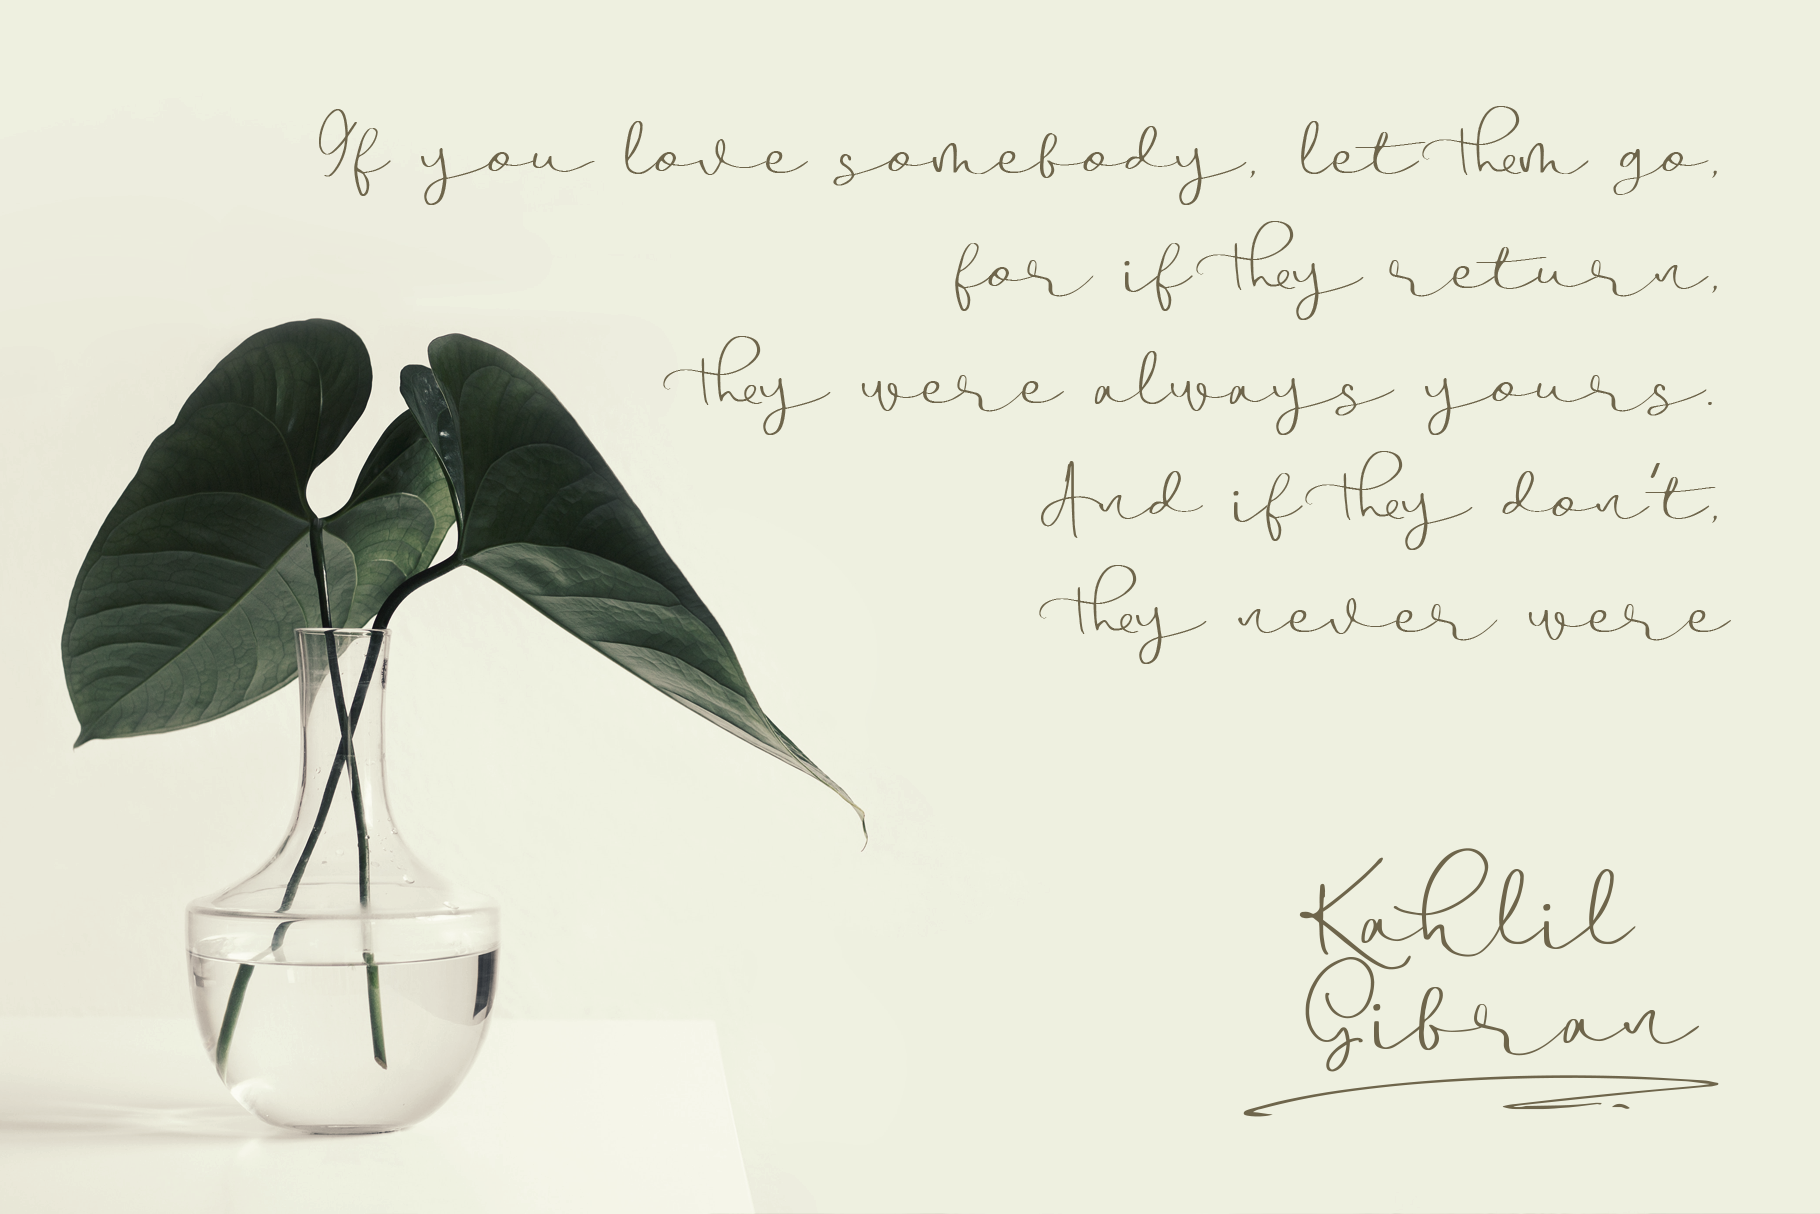 If you love somebody, let them go,
for if they return,
they were always yours.
And if they don't,
they never were
Kahlil
Gibran